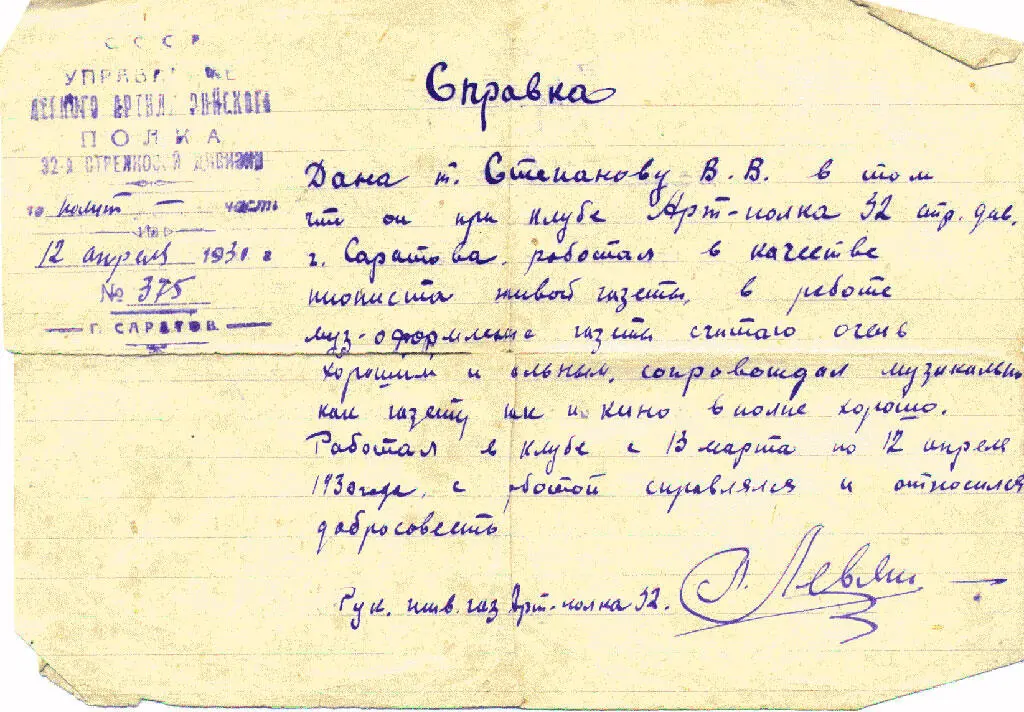 СССР
УПРАВЛЕНИЕ
ЛЕГКОГО АРТИЛЛЕРИЙСКОГО
ПОЛКА
32-й СТРЕЛКОВОЙ ДИВИЗИИ
по полит — часть
12 апреля 1930 г
№ 375
Г. САРАТОВ
Справка
Дана т. Степанову В. В. в том
что он при клубе Арт-полка 32 стр. див.
г. Саратова работал в качестве
пиониста живой газеты, в работе
муз-оформление газеты считаю очень
хорошим и сльным, сопровождал музикально
как газету так и кино вполне хорошо.
Работал в клубе с 13 марта по 12 апреля
1930 года, с работой справлялся и относился
добросовестъ
Рук. жив. газ Арт-полка 32.